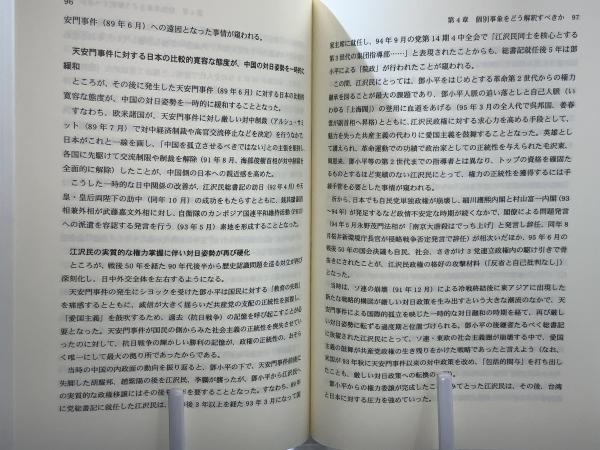 96
安門事件（89年6月）への遠因となった事情が窺われる。
天安門事件に対する日本の比較的寛容な態度が、中国の対日姿勢を一時的に
緩和
ところが、その後に発生した天安門事件（89年6月）に対する日本の比較的
寛容な態度が、中国の対日姿勢を一時的に緩和することとなった。
すなわち、欧米諸国が、天安門事件に対し厳しい対中制裁（アルシュ・サミ
ット（89年7月）で対中経済制裁や高官交流停止などを決定）を行うなかで、
日本がこれと一線を画し、「中国を孤立させるべきではない」との主張を展開し
各国に先駆けて交流制限や制裁を解除（91年8月、海部俊樹首相が対中制裁を
全面的に解除）したことが、中国側の日本への親近感を高めた。
こうした一時的な日中関係の改善が、江沢民総書記の訪日（92年4月）や天
皇・皇后両陛下の訪中（同年10月）の成功をもたらすとともに、銭其琛副首
相兼外相が武藤嘉文外相に対し、自衛隊のカンボジア国連平和維持活動
への派遣を容認する発言を行う（93年5月）素地を形成することとなった。
江沢民の実質的な権力掌握に伴い対日姿勢が再び硬化
ところが、戦後50年を経た90年代後半から歴史認識問題を巡る対立が再び
深刻化し、日中外交全体を左右するようになる。
天安門事件の発生にショックを受けた鄧小平は国民に対する「教育の失敗」
を痛感するとともに、威信が大きく揺らいだ共産党の支配の正統性を回復し、
「愛国主義」を鼓吹するため、過去（抗日戦争）の記憶を呼び起こすことが必
要となった。天安門事件が国民の側からみた社会主義の正統性を喪失させてい
ったのに対して、抗日戦争の輝かしい勝利の記憶が、政権の正統性の、おそら
く唯一にして最大の拠り所であったからである。
当時の中国の内政面の動向を振り返ると、鄧小平の下で、天安門事件前後に
失脚した胡耀邦、趙紫陽の後を江沢民、李鵬が襲ったが、鄧小平から江沢民へ
の実質的な政権移譲にはその後を要することとなった。すなわち、89年
に党総書記に就任した江沢民は、後3年以上を経た93年3月になって国
第4章 個別事象をどう解釈すべきか 97
家主席に就任し、94年9月の党第14期4中全会で「江沢民同士を核心とする
第3世代の集団指導部……」と表現されたことからも、総書記就任後5年は鄧
小平による「院政」が行われたことが窺われる。
この間、江沢民にとっては、鄧小平をはじめとする革命第2世代からの権力
継承を図ることが最大の課題であり、鄧小平人脈の追い落としと自己人脈（い
わゆる「上海閥」）の登用に血道をあげる（95年3月の全人代で呉邦国、姜春
雲が副首相へ昇格）とともに、江沢民政権に対する求心力を高める手段として、
魅力を失った共産主義の代わりに愛国主義を鼓舞することとなった。英雄とし
て讃えられ、革命運動での功績で政治家としての正統性を与えられた毛沢東、
周恩来、鄧小平等の第2世代までの指導者とは異なり、トップの資格を確認た
るものとするほど実績のない江沢民にとって、権力の正統性を獲得するには手
練手管を必要とした事情が窺われる。
折から、日本でも自民党単独政権が崩壊し、細川護熙内閣と村山富一内閣（93
〜94年）が発足するなど政情不安定な時期が続くなかで、閣僚による問題発言
（94年5月永野茂門法相が「南京大虐殺はでっち上げ」と発言し辞任、同年8
月桜井新環境庁長官が侵略戦争否定発言で辞任）が相次いだほか、95年6月の
戦後50年の国会決議も自民、社会、さきがけ3党連立政権内の駆け引きで骨
抜きにされたことが、江沢民政権の格好の攻撃材料（「反省と自己批判なし」）
となった。
当時は、ソ連の崩壊（91年12月）による冷戦終結後に東アジアに出現した
新たな戦略的構図が厳しい対日政策を生み出すという大きな潮流のなかで、天
安門事件による国際的孤立を映じた一時的な対日融和の時期を経て、再び厳し
い対日姿勢に転ずる過渡期と位置づけられる。鄧小平の後継者たるべく総書記
に抜擢された江沢民にとって、ソ連・東欧の社会主義圏が崩壊する中で、愛
国主義の鼓舞が共産党政権の生き残りをかけた戦略であったと言えよう（なお、
米国が93年秋に天安門事件以来の対中政策を改め、「包括的関与」を打ち出し
たことも、厳しい対日政策への転換の。
鄧小平からの権力委譲が完成したこととった江沢民は、その後、台湾
と日本に対する圧力を強めていった。